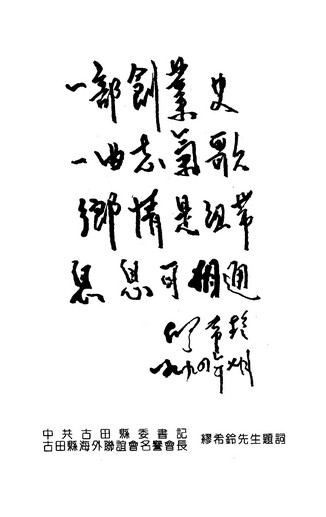 一部創業史
一曲志氣歌
鄉情是紐帶
息息可相通
繆希鈴
一九九四年
中共古田縣委書記
古田縣海外聯誼會名譽會長
繆希鈴先生題詞